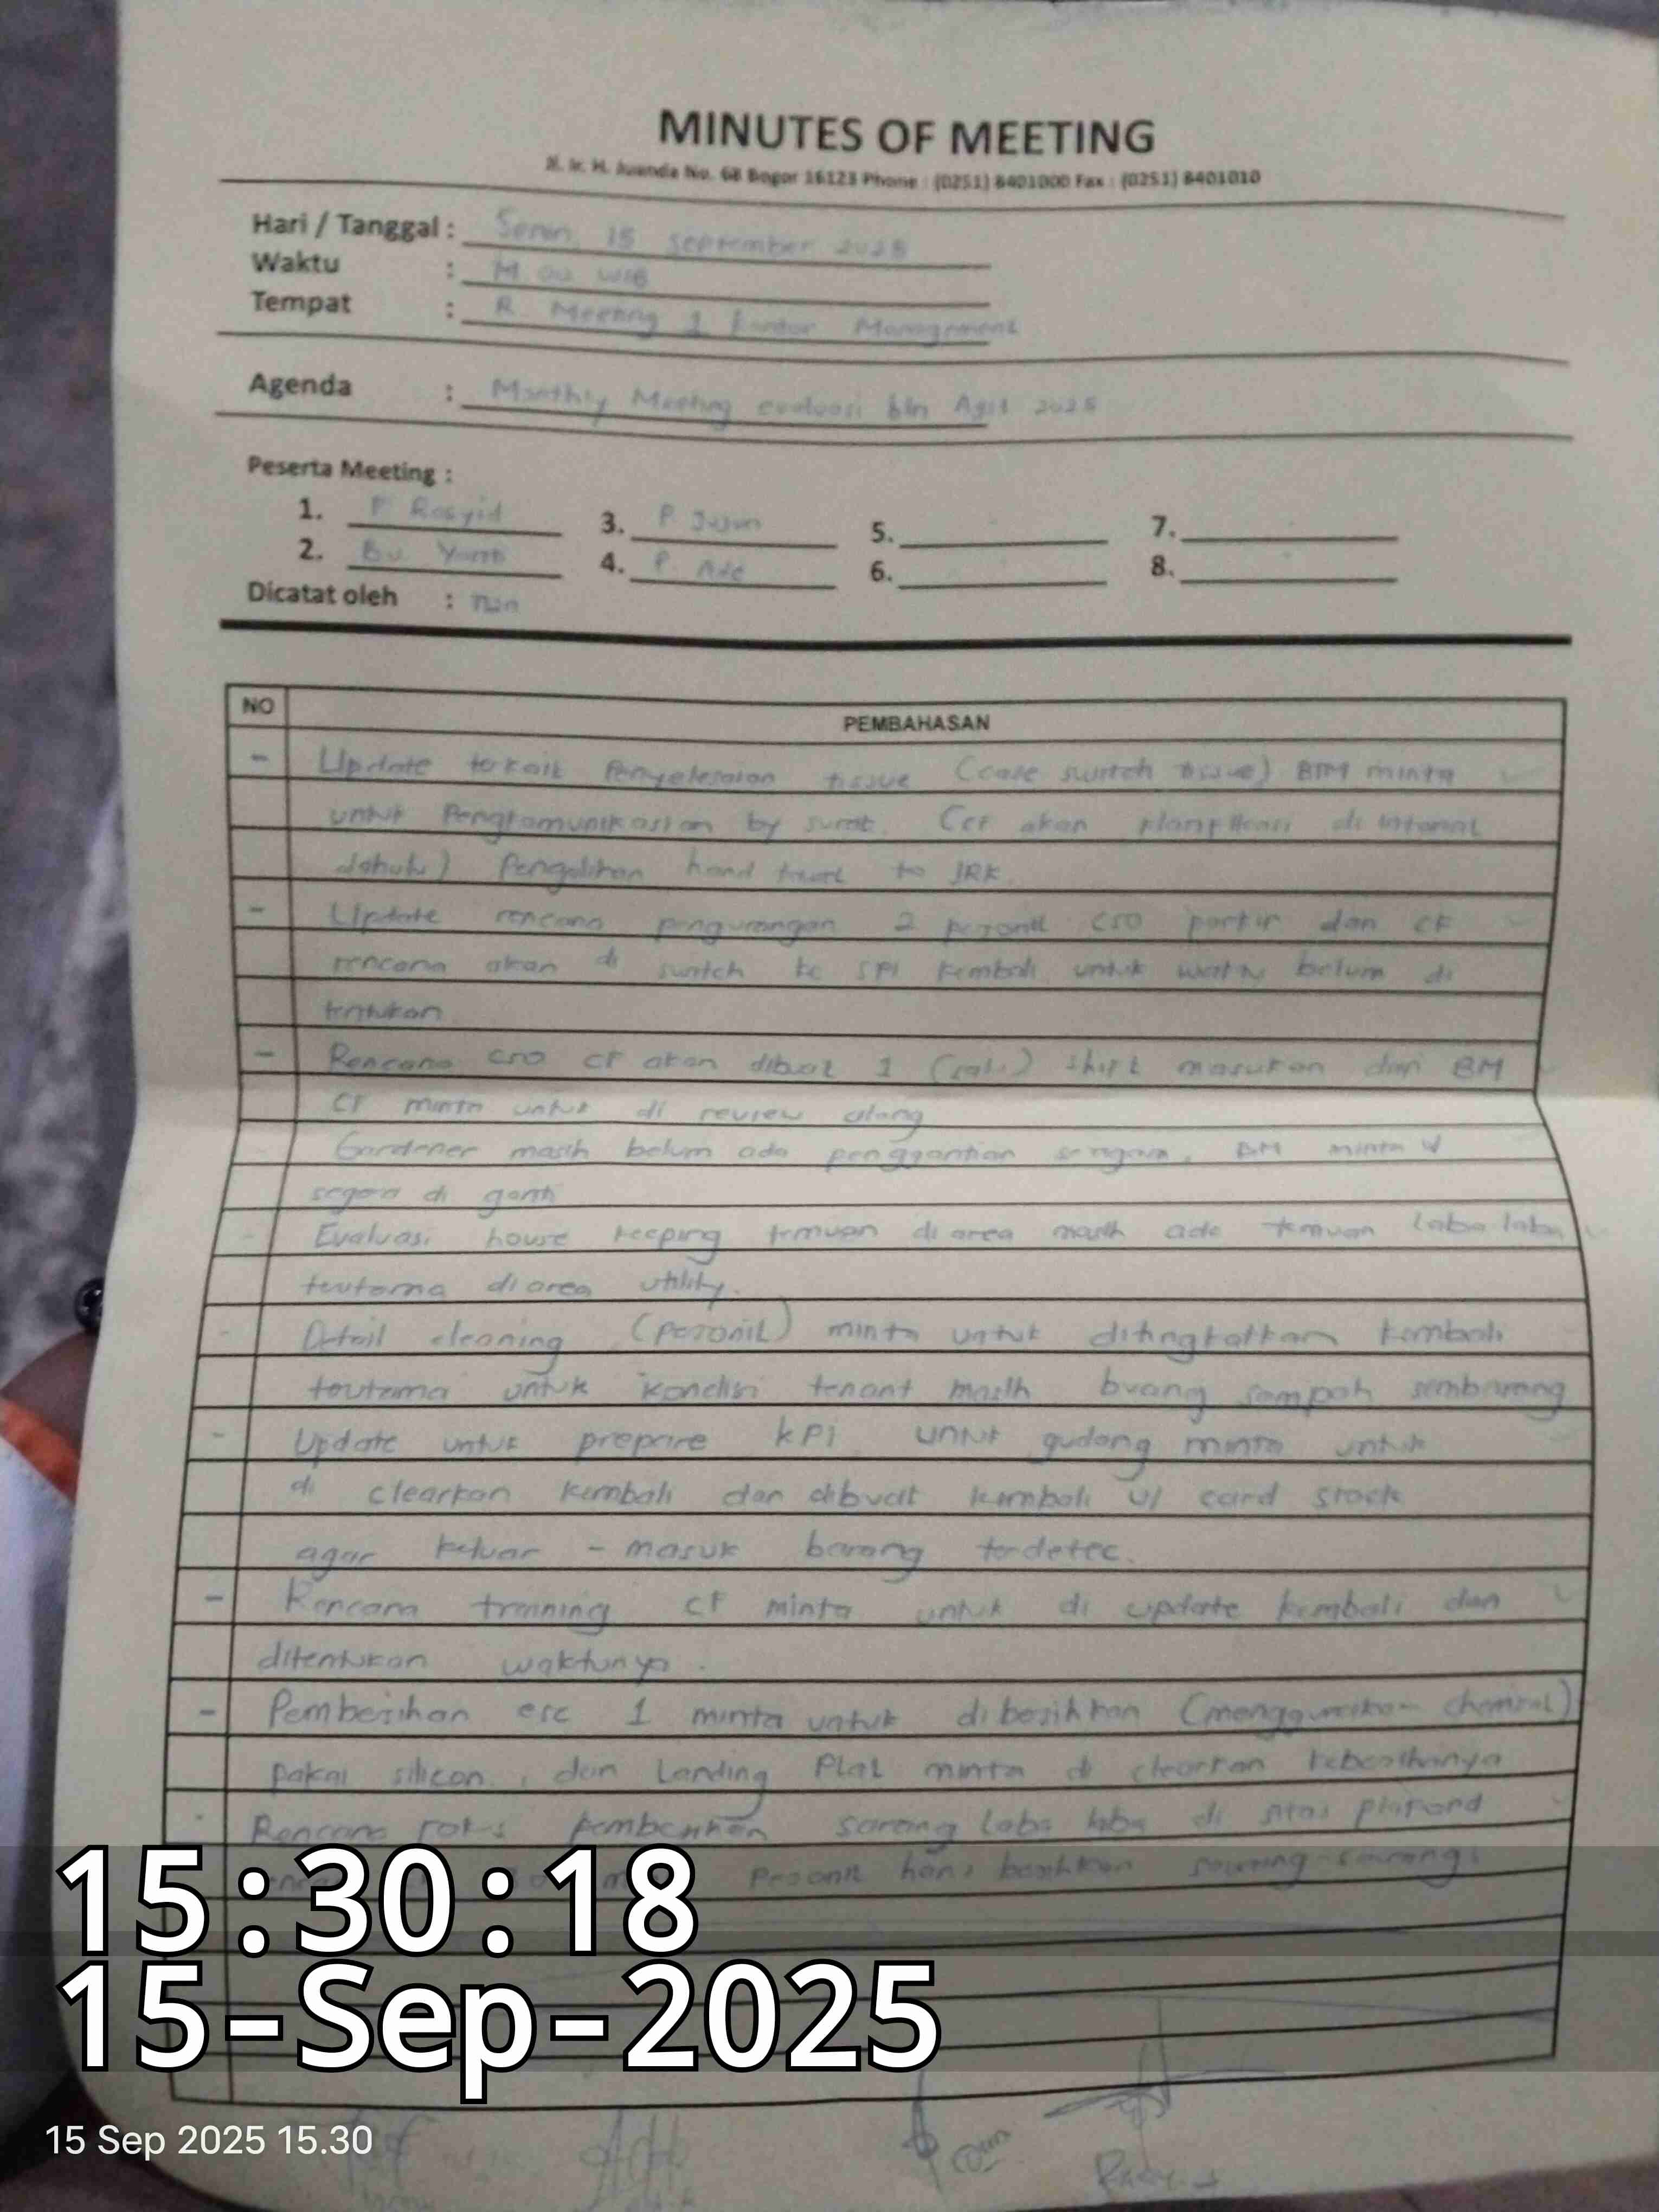 MINUTES OF MEETING
Jl. Ir. H. Juanda No. 68 Bogor 16123 Phone : (0251) 8401000 Fax : (0251) 8401010
Hari / Tanggal : Senin, 15 September 2025
Waktu : 00 WIB
Tempat : R. Meeting 1 Kantor Management
Agenda : Monthly Meeting evaluasi bln Agst 2025
Peserta Meeting :
1. P Rasyid 3. P Jujun 5. 7.
2. Bu Yanti 4. P Ade 6. 8.
Dicatat oleh :
NO PEMBAHASAN
- Update terkait Penyelesaian tissue (case switch tissue) BM minta
untuk Pengkomunikasian by surat. (CF akan di internal
dahulu) Pengalihan hand towel to JRK.
- Update rencana pengurangan 2 personil CSO parkir dan CF
rencana akan di switch ke SPI kembali untuk waktu belum di
tentukan
- Rencana CSO CF akan dibuat 1 (satu) shift masukan dari BM
CF minta untuk di review ulang
- Gardener masih belum ada penggantian seragam, BM minta U
segera di ganti
- Evaluasi house keeping temuan di area masih ada temuan laba laba
terutama di area utility.
- Detail cleaning (personil) minta untuk ditingkatkan kembali
terutama untuk kondisi tenant masih buang sampah sembarang
- Update untuk preprire KPI untuk gudang minta untuk
di clearkan kembali dan dibuat kembali U/ card stock
agar keluar - masuk barang terdetec.
- Rencana trainning CF minta untuk di update kembali dan
ditentukan waktunya.
- Pembersihan esc 1 minta untuk dibersihkan (menggunakan chemical)
pakai silicon, dan Landing Plat minta di clearkan kebersihanya
- Rencana pembersihan sarang laba laba di atas plafond
personil bersihkan sarang-sarang
15:30:18
15-Sep-2025
15 Sep 2025 15.30